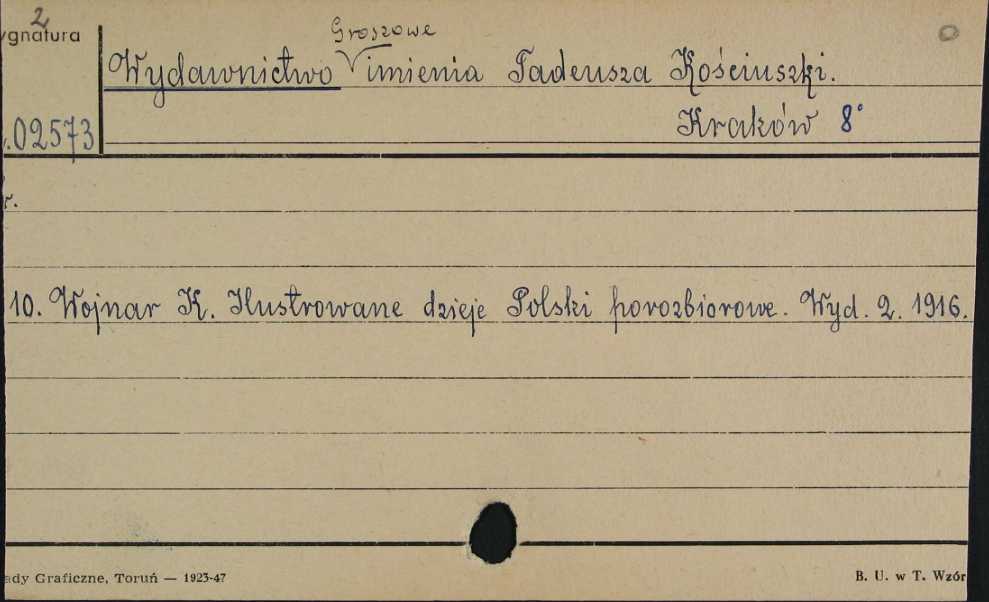 2
ygnatura
Groszowe
Wydawnictwo √ imienia Tadeusza Kościuszki.
Kraków 8°
02573
r.
10. Wojnar K. Ilustrowane dzieje Polski porozbiorowe. Wyd. 2. 1916.
ady Graficzne, Toruń — 1923-47
B. U. w T. Wzór